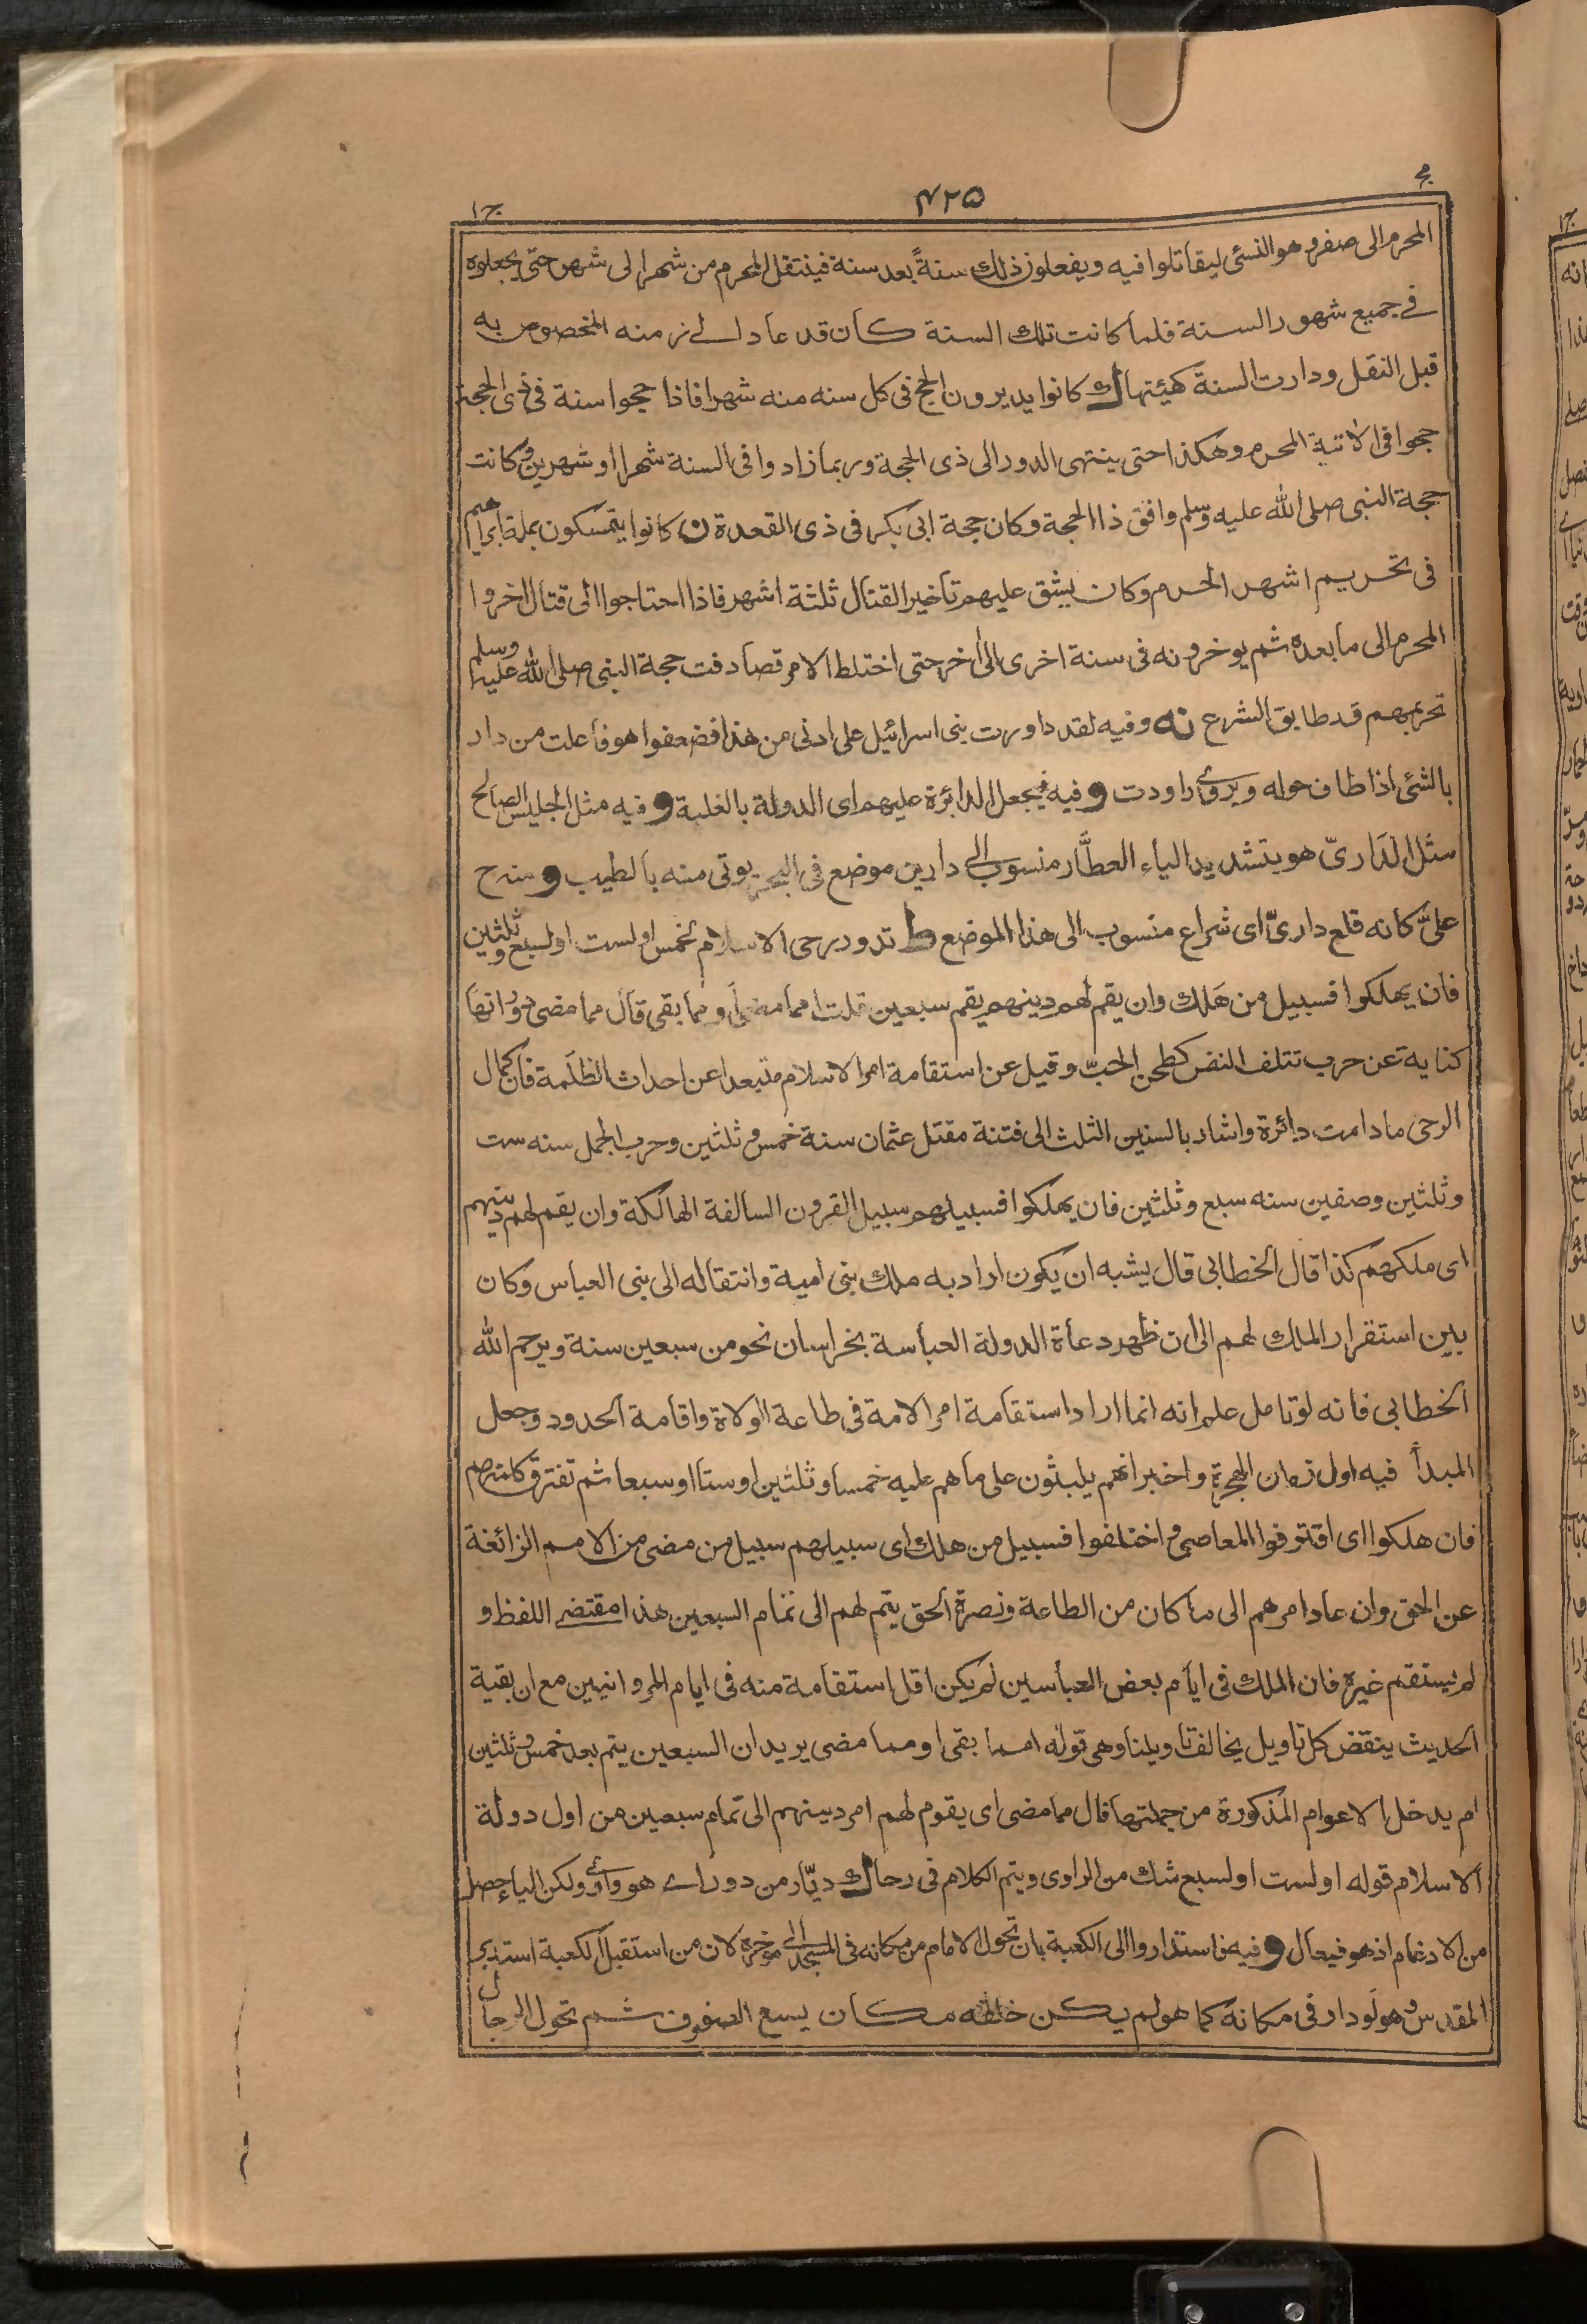 ج ۱
۴۲۵
المحرم الى صفر وهو النسئى ليقاتلوا فيه ويفعلون ذلك سنةً بعد سنة فينتقل المحرم من شهر الى شهر حتى يجعلوه
فے جميع شهور السنة فلما كانت تلك السنة كان قد عاد الے زمنه المخصوص به
قبل النقل ودارت السنة كهيئتها ك كانوا يديرون الحج فى كل سنه منه شهرا فاذا حجوا سنة فى ذى الحجة
حجوا فى الاتية المحرم وهكذا حتى ينتهى الدور الى ذى الحجة وربما زادوا فى السنة شهرا او شهرين وكانت
حجة النبى صلى الله عليه وسلم وافق ذا الحجة وكان حجة ابى بكر فى ذى القعدة ن كانوا يتمسكون بملة ابراهيم
فى تحريم اشهر الحرم وكان يشق عليهم تاخير القتال ثلثة اشهر فاذا احتاجوا الى قتال اخروا
المحرم الى ما بعده ثم يوخرونه فى سنة اخرى الى اخر حتى اختلط الامر فصادفت حجة النبى صلى الله عليه وسلم
تحريمهم قد طابق الشرع نه وفيه لقد داورت بنى اسرائيل على ادنى من هذا فضعفوا هو فاعلت من دار
بالشئى اذا طاف حوله ويروى راودت و فيه فيجعل الدائرة عليهم اى الدولة بالغلبة و فيه مثل الجليس الصالح
مثل الدَارىّ هو بتشديد الياء العطَّار منسوب الى دارين موضع فى البحر يوتى منه بالطيب و منه ح
علىّ كانه قلع دارىّ اى شراع منسوب الى هذا الموضع ط تدور رحى الاسلام لخمس او لست او لسبع وثلثين
فان يهلكوا فسبيل من هَلك وان يقم لهم دينهم يقم سبعين قلت امما مضى او مما بقى قال مما مضى دورانها
كناية عن حرب تتلف النفس كطحن الحبّ وقيل عن استقامة امر الاسلام متبعدا عن احداث الظلَمة فان كمال
الرحى ما دامت دائرة واشار بالسنين الثلث الى فتنة مقتل عثمان سنة خمس وثلثين وحرب الجمل سنه ست
وثلثين وصفين سنه سبع وثلثين فان يهلكوا فسبيلهم سبيل القرون السالفة الهالكة وان يقم لهم دينهم
اى ملكهم كذا قال الخطابى قال يشبه ان يكون اراد به ملك بنى امية وانتقاله الى بنى العباس وكان
بين استقرار الملك لهم الى ان ظهر دعاة الدولة العباسة بخراسان نحو من سبعين سنة ويرحم الله
الخطابى فانه لو تامل علم انه انما اراد استقامة امر الامة فى طاعة الولاة واقامة الحدود وجعل
المبدأ فيه اول زمان الهجرة واخبر انهم يلبثون على ما هم عليه خمسا وثلثين او ستا او سبعا ثم تفترق كلمتهم
فان هلكوا اى اقترفوا المعاصى واختلفوا فسبيل من هلك اى سبيلهم سبيل من مضى من الامم الزائغة
عن الحق وان عاد امرهم الى ما كان من الطاعة ونصرة الحق يتم لهم الى تمام السبعين هذا مقتضے اللفظ و
لم يستقم غيره فان الملك فى ايام بعض العباسين لم يكن اقل استقامة منه فى ايام المروانيين مع ان بقية
الحديث ينقض كل تاويل يخالف تاويلنا وهى قوله امما بقى او مما مضى يريد ان السبعين يتم بعد خمس وثلثين
ام يدخل الاعوام المذكورة من جملتها قال مما مضى اى يقوم لهم امر دينهم الى تمام سبعين من اول دولة
الاسلام قوله او لست او لسبع شك من الراوى ويتم الكلام فى رحا ك ديّار من دور اے هو واوى ولكن الياء حصل
من الادغام اذ هو فيعال و فيه فاستداروا الى الكعبة بان تحول الامام من مكانه فى المسجد الى موخره لان من استقبل الكعبة استدبر
المقدس وهو لو دار فى مكانه كما هو لم يكن خلفه مكان يسع الصفوف ثم تحول الرجال